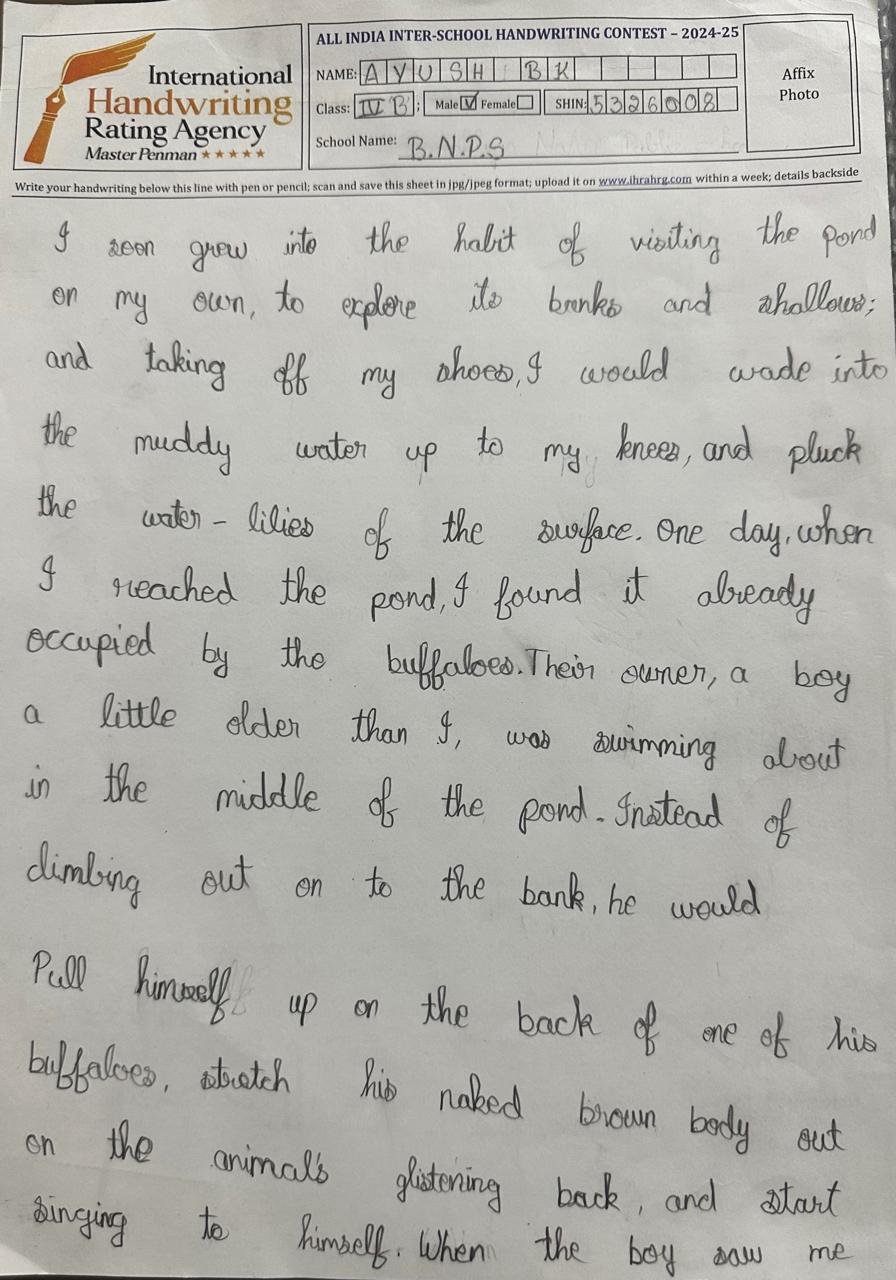 International
Handwriting
Rating Agency
Master Penman ★★★★★
ALL INDIA INTER-SCHOOL HANDWRITING CONTEST – 2024-25
NAME: AYUSH BK
Class: IV B; Male ☑ Female ☐ SHIN: 5326008
School Name: B.N.P.S
Affix
Photo
Write your handwriting below this line with pen or pencil; scan and save this sheet in jpg/jpeg format; upload it on www.ihrahrg.com within a week; details backside
I soon grew into the habit of visiting the pond
on my own, to explore its banks and shallows;
and taking off my shoes, I would wade into
the muddy water up to my knees, and pluck
the water - lilies of the surface. One day, when
I reached the pond, I found it already
occupied by the buffaloes. Their owner, a boy
a little older than I, was swimming about
in the middle of the pond. Instead of
climbing out on to the bank, he would
Pull himself up on the back of one of his
buffaloes, stretch his naked brown body out
on the animal's glistening back, and start
singing to himself. When the boy saw me